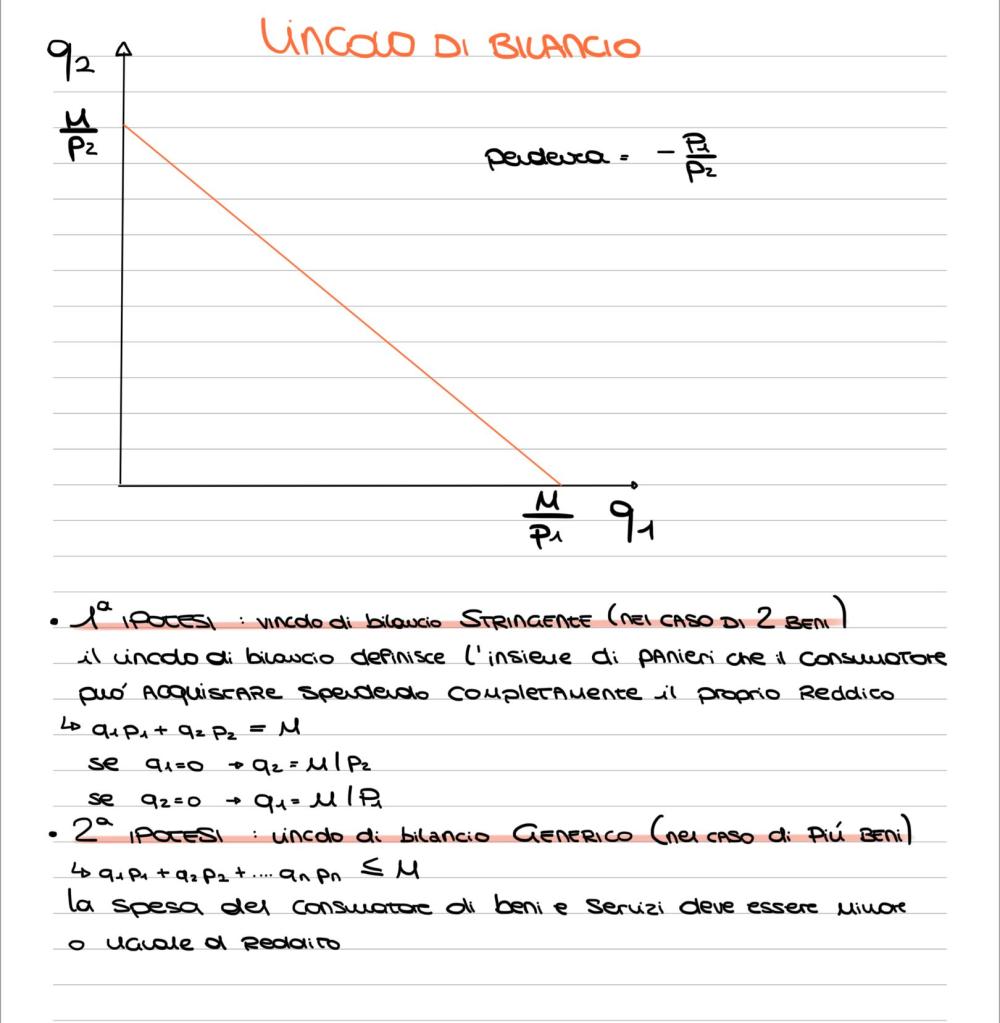 VINCOLO DI BILANCIO
q2
M/P2
pendenza = - P1/P2
M/P1 q1
• 1ª IPOTESI : vincolo di bilancio STRINGENTE (NEL CASO DI 2 BENI)
il vincolo di bilancio definisce l'insieme di PANIERI che il CONSUMATORE
può ACQUISTARE spendendo COMPLETAMENTE il proprio Reddito
↳ q1p1 + q2p2 = M
se q1=0 → q2 = M/P2
se q2=0 → q1 = M/P1
• 2ª IPOTESI : vincolo di bilancio GENERICO (nel CASO di Più BENI)
↳ q1p1 + q2p2 + .... qnpn ≤ M
la spesa del consumatore di beni e servizi deve essere minore
o uguale al Reddito